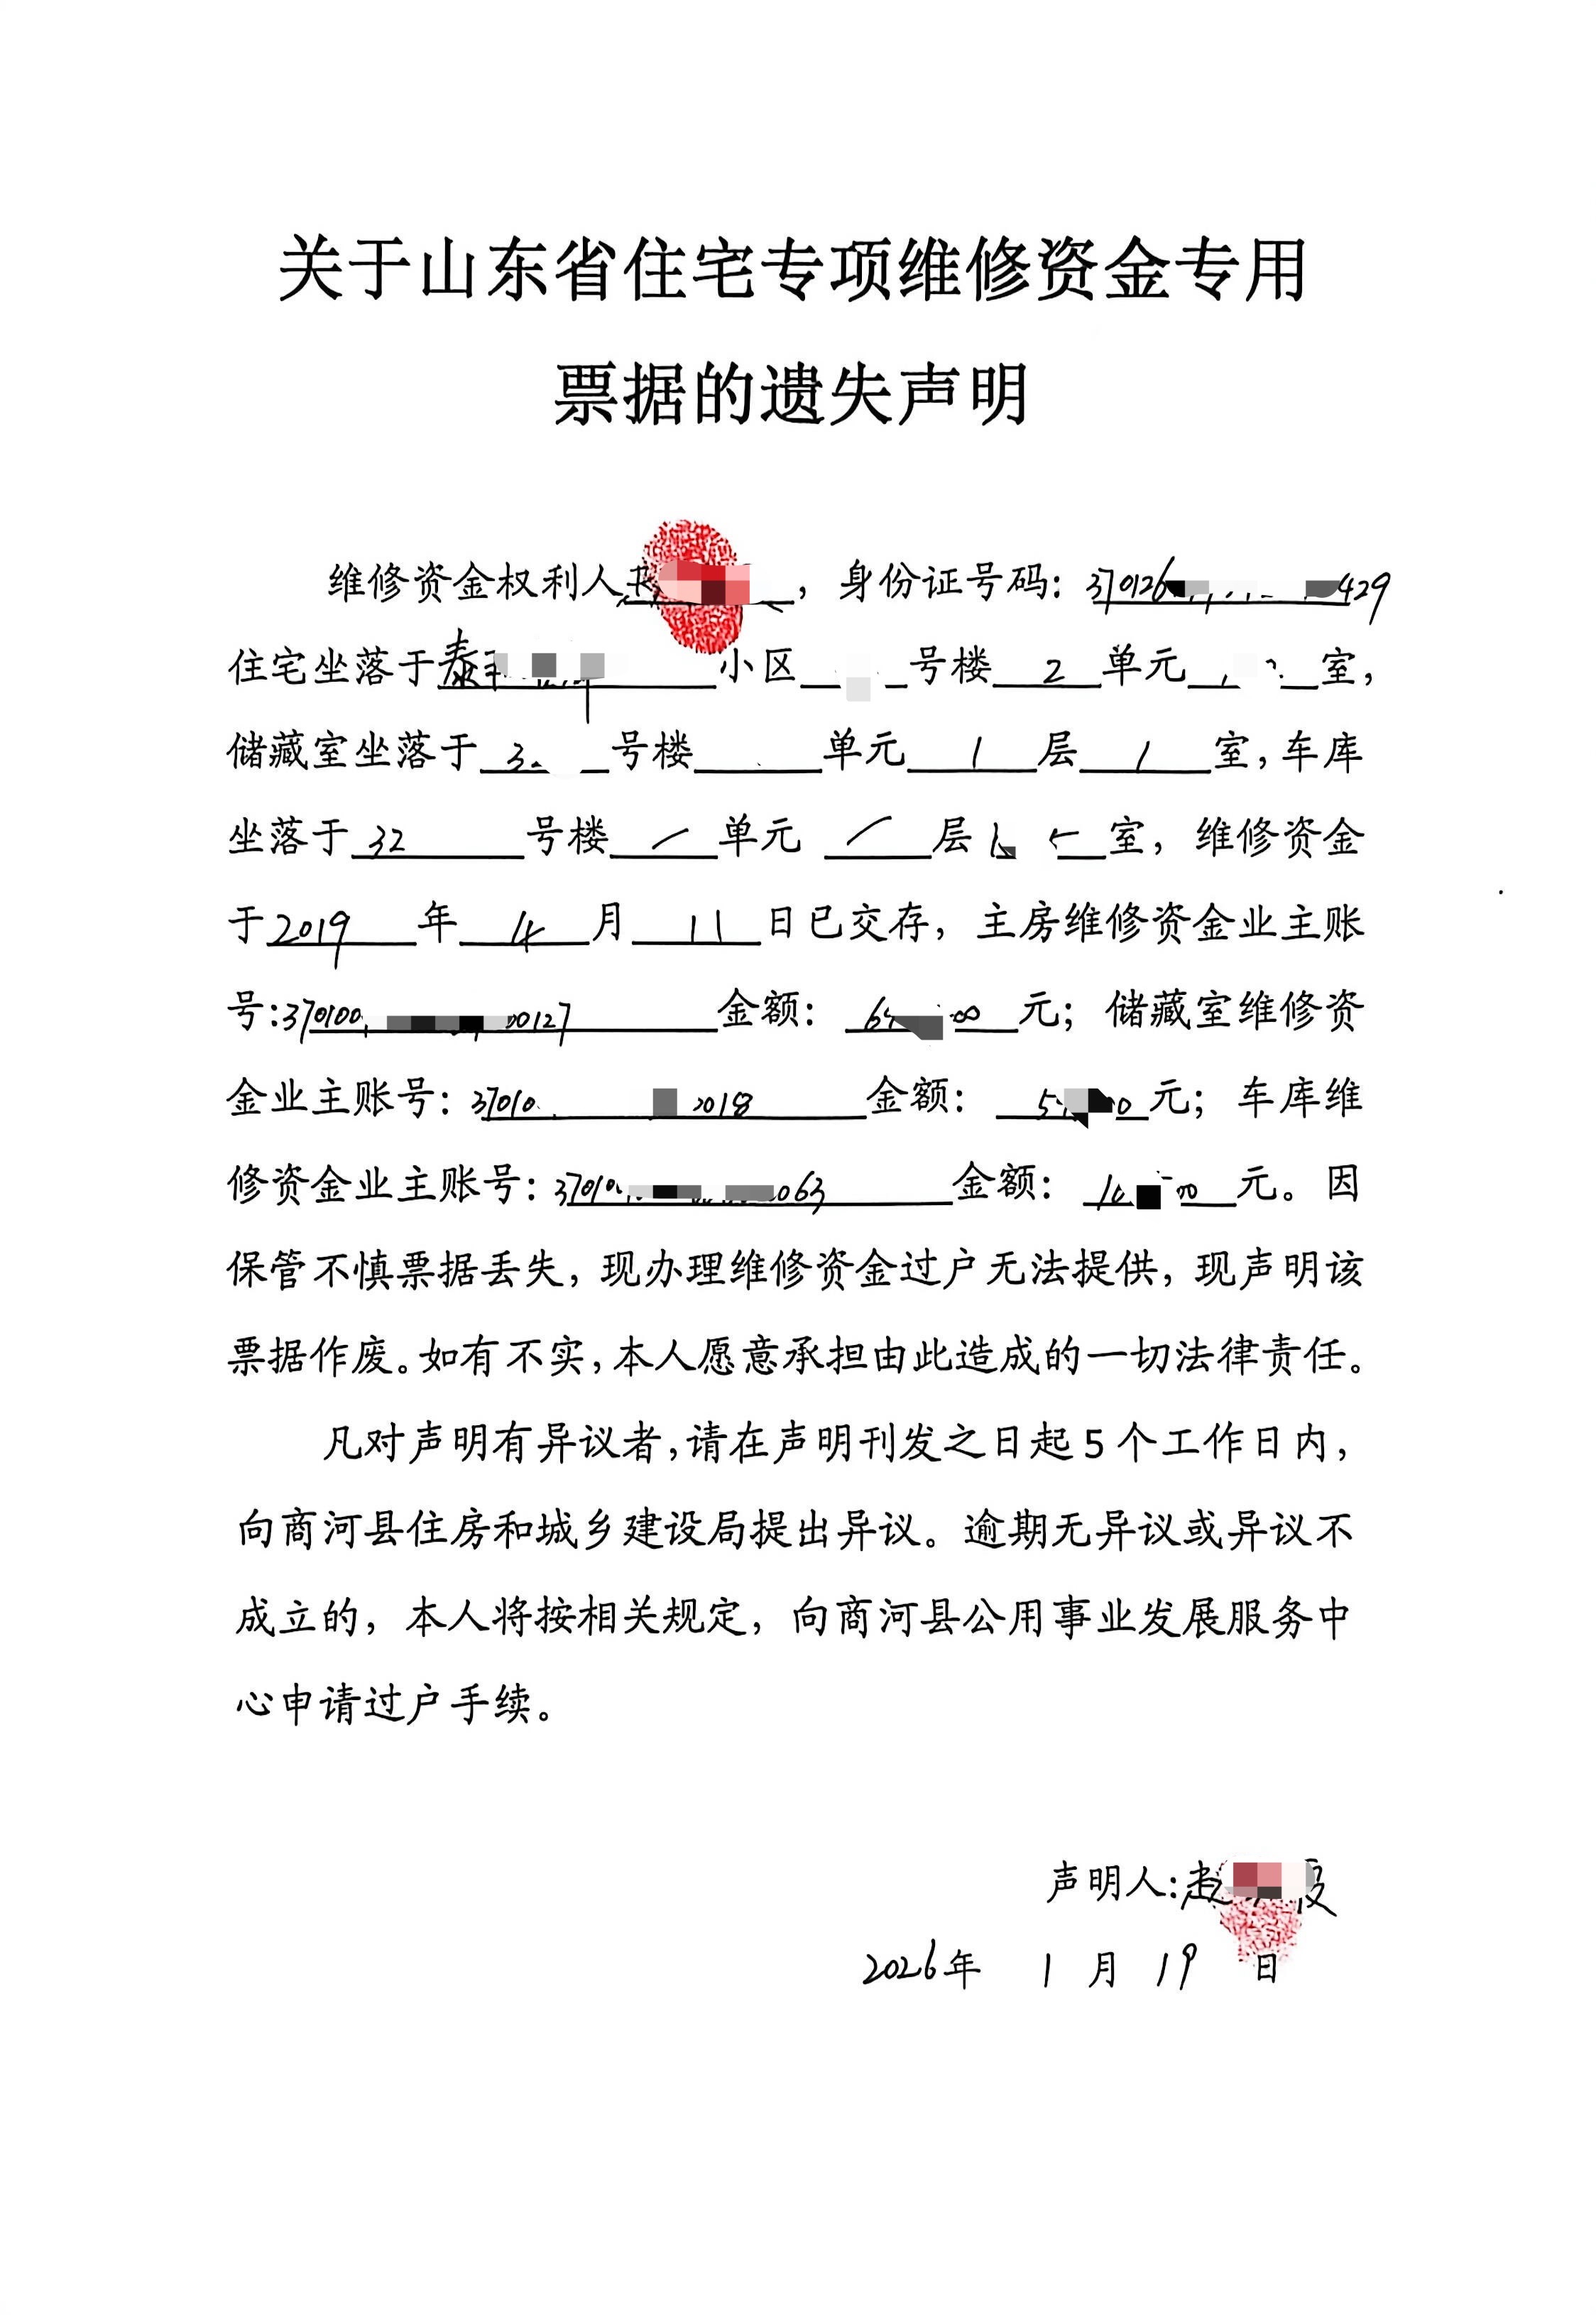 关于山东省住宅专项维修资金专用
票据的遗失声明
维修资金权利人，身份证号码：370126 429
住宅坐落于泰 小区 号楼 2 单元 室，
储藏室坐落于 3 号楼 单元 1 层 1 室，车库
坐落于 32 号楼 / 单元 / 层 室，维修资金
于 2019 年 4 月 11 日已交存，主房维修资金业主账
号：370100 00127 金额： 元；储藏室维修资
金业主账号：37010 2018 金额： 元；车库维
修资金业主账号：37010 063 金额： 元。因
保管不慎票据丢失，现办理维修资金过户无法提供，现声明该
票据作废。如有不实，本人愿意承担由此造成的一切法律责任。
凡对声明有异议者，请在声明刊发之日起5个工作日内，
向商河县住房和城乡建设局提出异议。逾期无异议或异议不
成立的，本人将按相关规定，向商河县公用事业发展服务中
心申请过户手续。
声明人：赵 霞
2026年 1 月 19 日